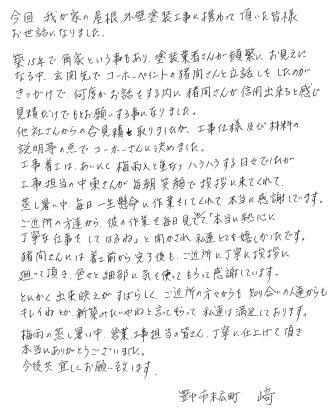 今回 我が家の屋根、外壁塗装工事に携わって頂いた皆様
お世話になりました。
築15年で角家という事もあり、塗装業者さんが頻繁にお見えに
なる中、玄関先でコーホーペイントの猪間さんと立話しをしたのが
きっかけで、何度かお話をする内に猪間さんが信用出来ると感じ
見積だけでもとお願いする事になりました。
他社さんからの合見積も取りましたが、工事仕様及び材料の
説明等の点でコーホーさんに決めました。
工事着工は、あいにく梅雨入と重なりハラハラする日々でしたが
工事担当の中東さんが毎朝笑顔で挨拶に来てくれて、
蒸し暑い中、毎日一生懸命に作業をしてくれて本当に感謝しています。
ご近所の方達から、彼の作業を毎日見てると「本当に熱心に
丁寧な仕事をしてはるね」と聞かされ私達とても嬉しかったです。
猪間さんには着工前から完了後も、ご近所に丁寧に挨拶に
廻って頂き、色々と細部に気を使ってもらって感謝しています。
とにかく出来映えがすばらしく、ご近所の方々からも知り合いの人達からも
キレイねとか、新築みたいやねと言われて私達は満足しております。
梅雨の蒸し暑い中、営業、工事担当の皆さん、丁寧に仕上げて頂き
本当にありがとうございました。
今後共宜しくお願い致します。
豊中市末広町 﨑